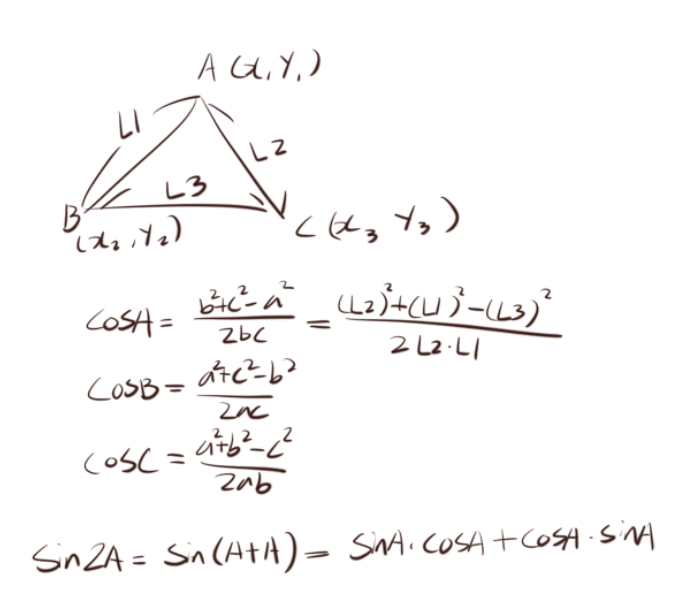 A (x₁ Y₁)
L1
L2
L3
B
(x₂, Y₂)
C (x₃ Y₃)
cosA = b²+c²-a² / 2bc = (L2)²+(L1)²-(L3)² / 2 L2·L1
cosB = a²+c²-b² / 2ac
cosC = a²+b²-c² / 2ab
Sin2A = Sin(A+A) = SinA·cosA + cosA·sinA